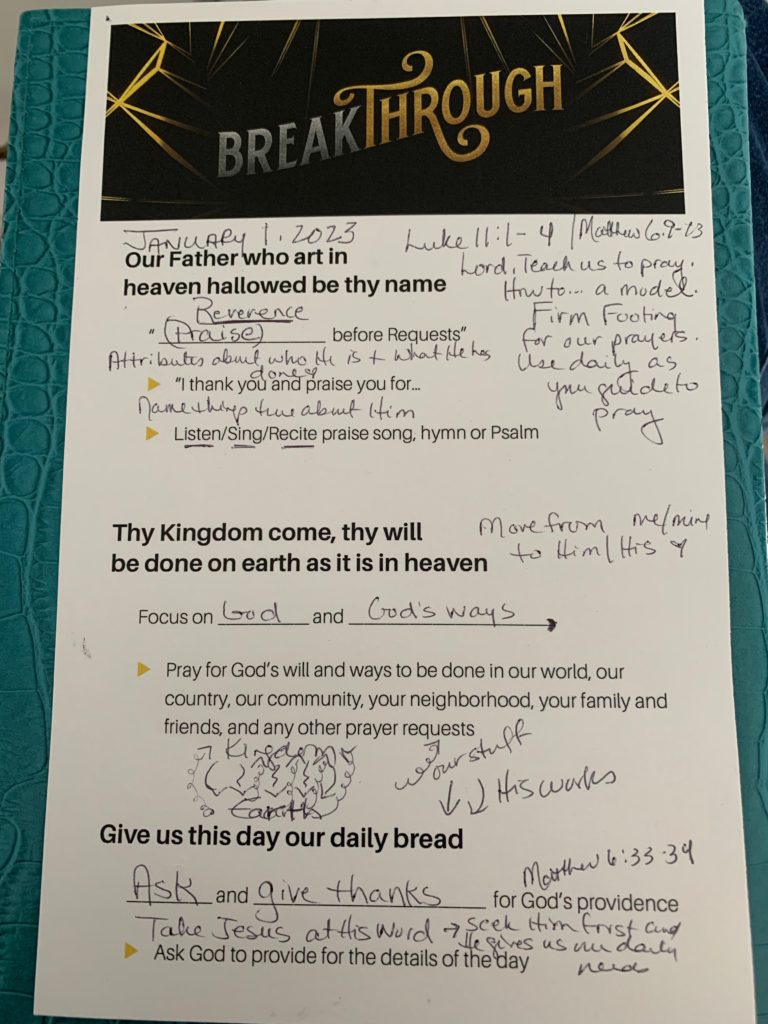 BREAKTHROUGH
JANUARY 1, 2023
Luke 11:1-4 / Matthew 6:9-13
Our Father who art in
heaven hallowed be thy name
Lord, Teach us to pray.
How to... a model.
Firm Footing
for our prayers.
Use daily as
your guide to
pray
Reverence
" Praise before Requests"
Attributes about who He is + what He has
done
"I thank you and praise you for...
Name things true about Him
Listen/Sing/Recite praise song, hymn or Psalm
Thy Kingdom come, thy will
be done on earth as it is in heaven
Move from me/mine
to Him/His
Focus on God and God's ways
Pray for God's will and ways to be done in our world, our
country, our community, your neighborhood, your family and
friends, and any other prayer requests
Kingdom
Earth
our stuff
His works
Give us this day our daily bread
Matthew 6:33-34
Ask and give thanks for God's providence
Take Jesus at His Word → Seek Him first and
He gives us our daily
needs
Ask God to provide for the details of the day